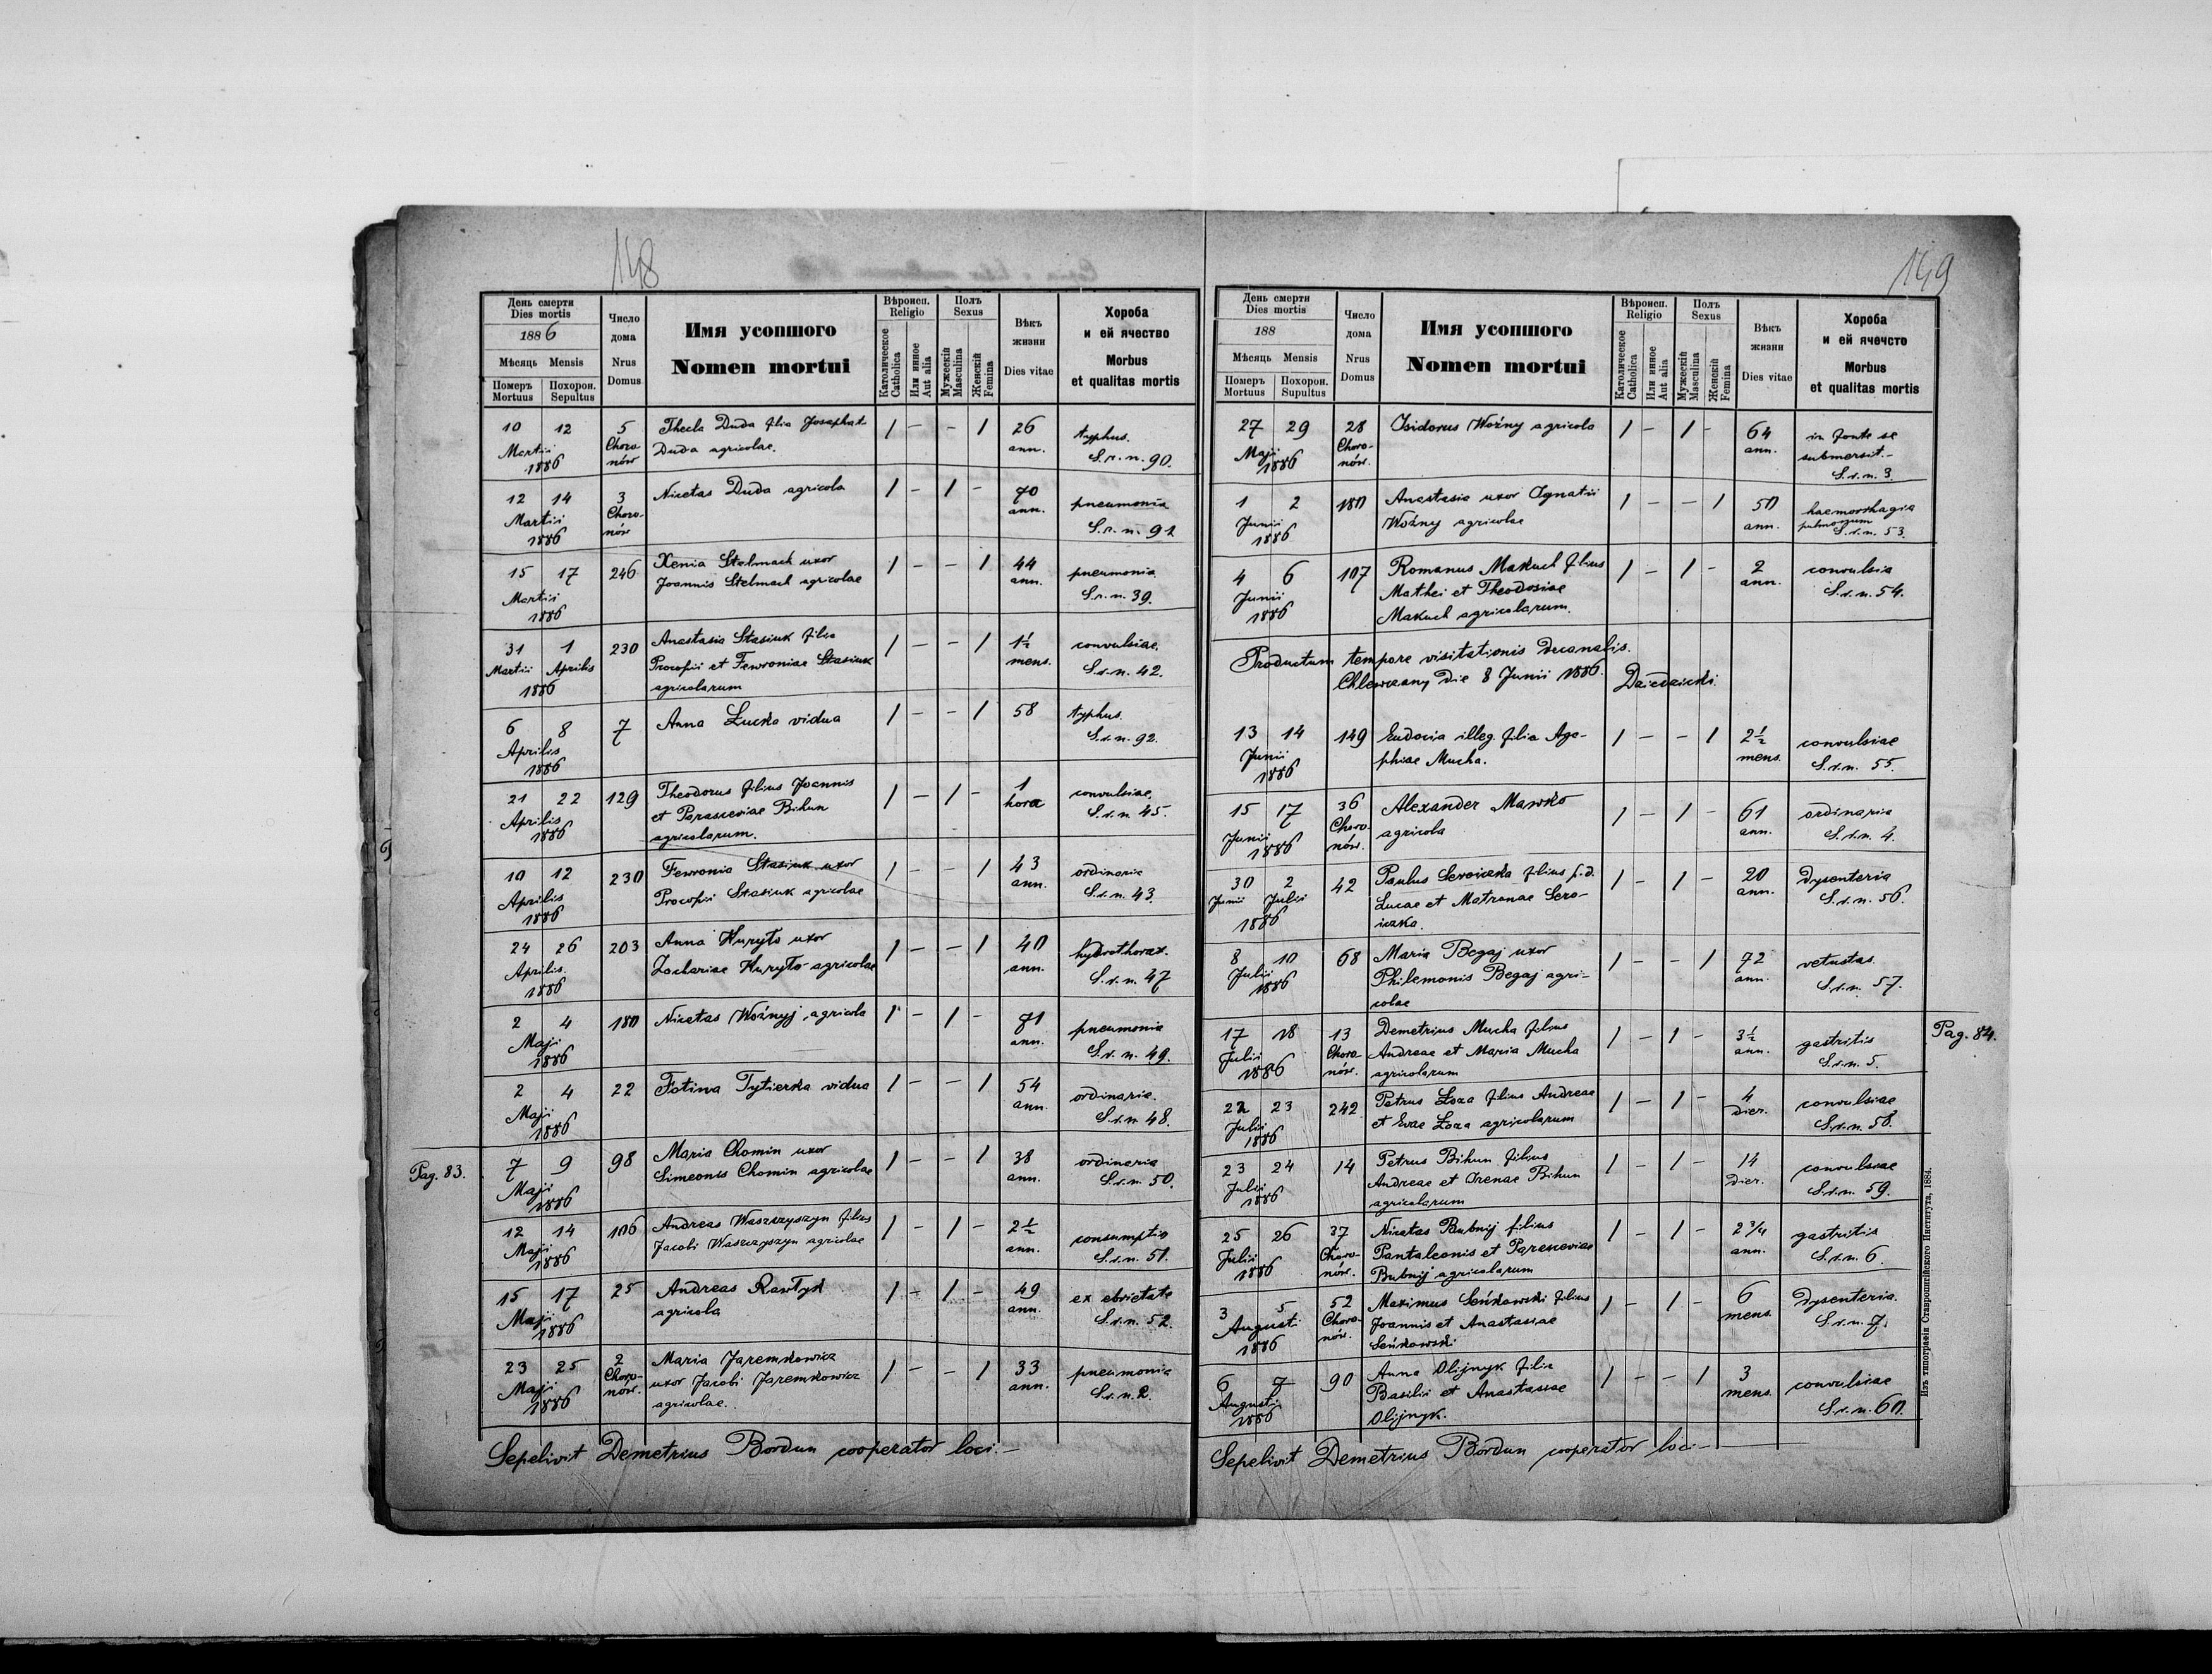 148
День смерти
Dies mortis
1886
Мѣсяць Mensis
Померъ Похорон.
Mortuus Sepultus
Число дома
Nrus Domus
Имя усопшого
Nomen mortui
Вѣроисп.
Religio
Католическое
Catholica
Или инное
Aut alia
Полъ
Sexus
Мужескій
Masculina
Женскій
Femina
Вѣкъ жизни
Dies vitae
Хороба
и ей ячество
Morbus
et qualitas mortis
10 12 5 Thecla Duda filia Josaphat / - - / 26 typhus.
Martii Choro- Duda agricolae. ann. S.r.n. 90.
1886 nów
12 14 3 Nicetas Duda agricola / - / - 70 pneumonia
Martii Choro- ann. S.r.n. 91
1886 nów
15 17 246 Xenia Stelmach uxor / - - / 44 pneumonia
Martii Joannis Stelmach agricolae ann. S.r.n. 39.
1886
31 1 230 Anastasia Stasiuk filia / - - / 1½ convulsiae.
Martii Aprilis Procopii et Fewroniae Stasiuk mens. S.r.n. 42.
1886 agricolarum
6 8 7 Anna Łucka vidua / - - / 58 typhus.
Aprilis S.r.n. 92.
1886
21 22 129 Theodorus filius Joannis / - / - 1 convulsiae.
Aprilis et Parasceviae Bihun hora S.r.n. 45.
1886 agricolarum.
10 12 230 Fewronia Stasiuk uxor / - - / 43 ordinaria
Aprilis Procopii Stasiuk agricolae ann. S.r.n. 43.
1886
24 26 203 Anna Kuryło uxor / - - / 40 hydrothorax.
Aprilis Zachariae Kuryło agricolae ann. S.r.n. 47
1886
2 4 180 Nicetas Woźnyj agricola / - / - 81 pneumonia
Maji ann. S.r.n. 49.
1886
2 4 22 Fotina Tytierka vidua / - - / 54 ordinaria.
Maji ann. S.r.n. 48.
1886
Pag. 83.
7 9 98 Maria Chomin uxor / - - / 38 ordinaria
Maji Simeonis Chomin agricolae ann. S.r.n. 50.
1886
12 14 106 Andreas Waszczyszyn filius / - / - 2½ consumptio
Maji Jacobi Waszczyszyn agricolae ann. S.r.n. 51.
1886
15 17 25 Andreas Rawłyk / - / - 49 ex ebrietate
Maji agricola ann. S.r.n. 52.
1886
23 25 2 Maria Jaremkowicz / - - / 33 pneumonia
Maji Choro- uxor Jacobi Jaremkowicz ann. S.r.n. 2.
1886 nów. agricolae.
Sepelivit Demetrius Bordun cooperator loci.—
149
День смерти
Dies mortis
188
Мѣсяць Mensis
Померъ Похорон.
Mortuus Supultus
Число дома
Nrus Domus
Имя усопшого
Nomen mortui
Вѣроисп.
Religio
Католическое
Catholica
Или инное
Aut alia
Полъ
Sexus
Мужескій
Masculina
Женскій
Femina
Вѣкъ жизни
Dies vitae
Хороба
и ей ячечсто
Morbus
et qualitas mortis
27 29 28 Isidorus Woźny agricola / - / - 64 in fonte se
Maji Choro- ann. submersit.-
1886 nów. S.r.n. 3.
1 2 180 Anastasia uxor Ignatii / - - / 50 haemorrhagia
Junii Woźny agricolae ann. pulmorum
1886 S.r.n. 53.
4 6 107 Romanus Makuch filius / - / - 2 convulsia
Junii Mathei et Theodosiae ann. S.r.n. 54.
1886 Makuch agricolarum.
Productum tempore visitationis decanalis.
Chlewczany die 8 Junii 1886. Dziedzicki.
13 14 149 Eudocia illeg. filia Aga- / - - / 2½ convulsiae
Junii phiae Mucha. mens. S.r.n. 55.
1886
15 17 36 Alexander Mawko / - / - 61 ordinaria
Junii Choro- agricola ann. S.r.n. 4.
1886 nów.
30 2 42 Paulus Seroiczka filius p.d. / - / - 20 dysenteria
Junii Julii Lucae et Matronae Sero- ann. S.r.n. 56.
1886 iczka.
8 10 68 Maria Begaj uxor / - - / 72 vetustas.
Julii Philemonis Begaj agri- ann. S.r.n. 57.
1886 colae
17 18 13 Demetrius Mucha filius / - / - 3½ gastritis Pag. 84.
Julii Choro- Andreae et Maria Mucha ann. S.r.n. 5.
1886 nów. agricolarum
22 23 242 Petrus Łoza filius Andreae / - / - 4 convulsiae
Julii et Evae Łoza agricolarum dier. S.r.n. 58.
1886
23 24 14 Petrus Bihun filius / - / - 14 convulsiae
Julii Andreae et Irenae Bihun dier. S.r.n. 59.
1886 agricolarum
25 26 37 Nicetas Bubnij filius / - / - 2 3/4 gastritis
Julii Choro- Pantaleonis et Parasceviae ann. S.r.n. 6.
1886 nów. Bubnij agricolarum
3 5 52 Maximus Seńkowski filius / - / - 6 dysenteria.
Augusti Choro- Joannis et Anastasiae mens. S.r.n. 7.
1886 nów. Seńkowski
6 7 90 Anna Olijnyk filia / - - / 3 convulsiae
Augusti Basilii et Anastasiae mens. S.r.n. 60.
1886 Olijnyk.
Sepelivit Demetrius Bordun cooperator loci —
Изъ типографіи Ставропигійского Института, 1884.